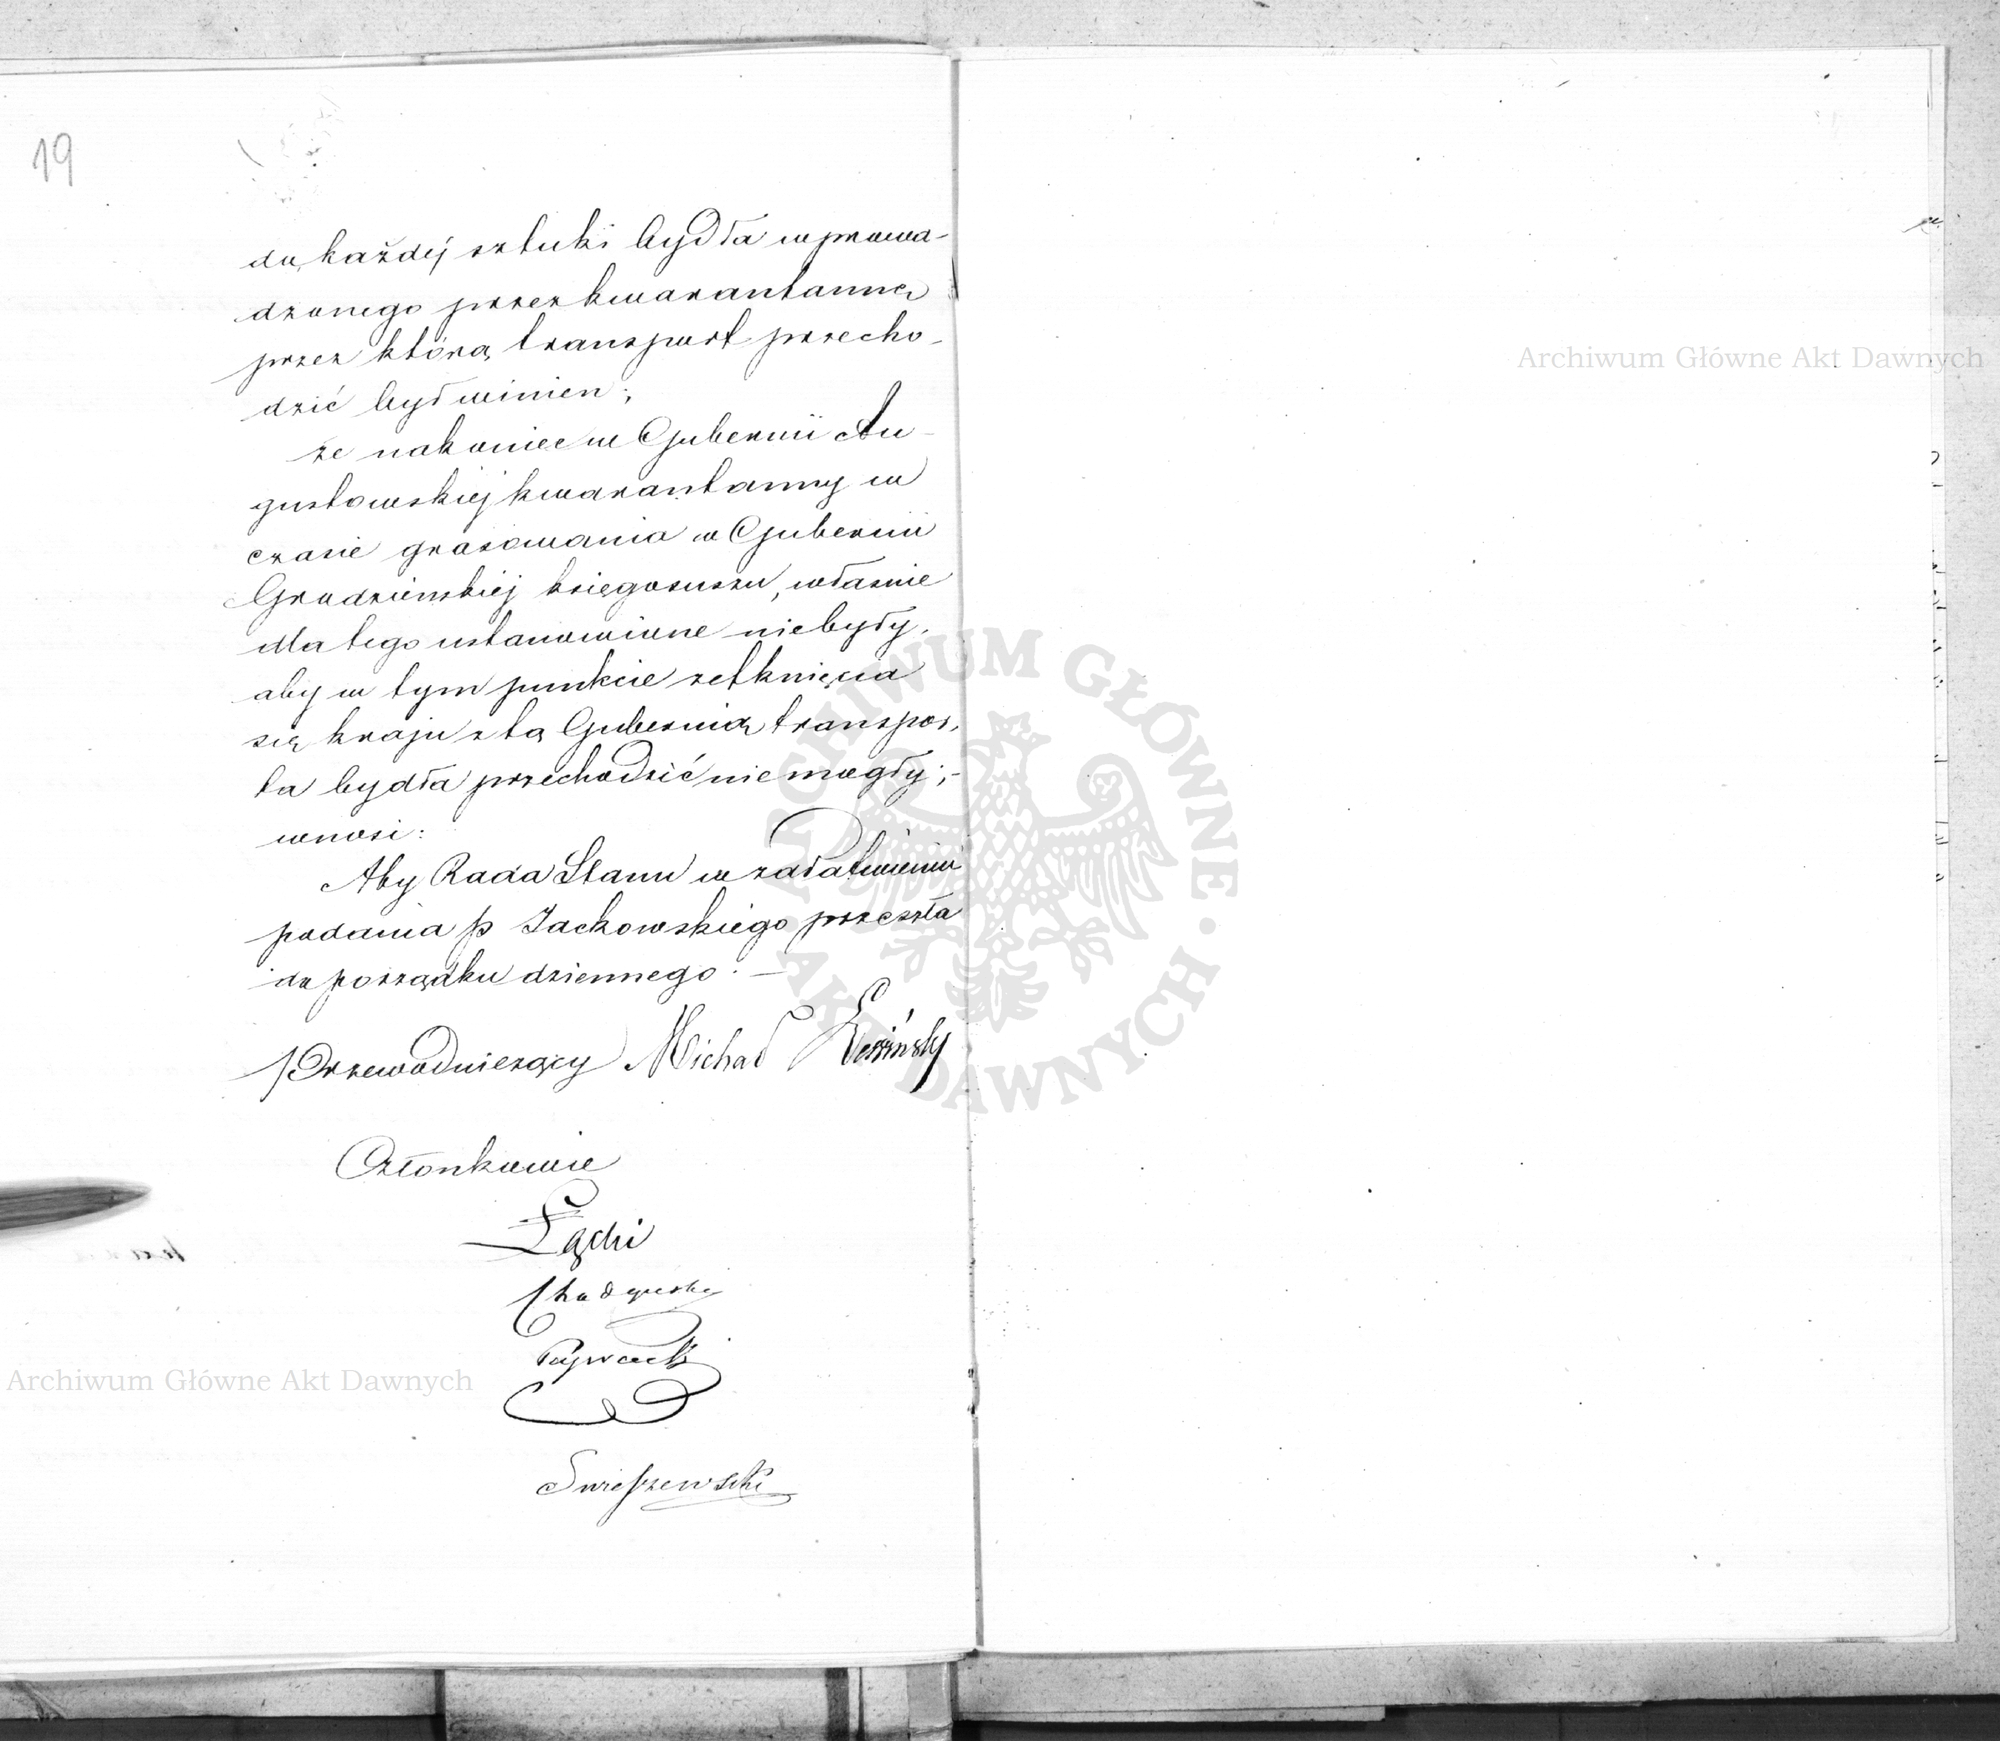 19
do każdéj sztuki bydła wprowa-
dzonego przez kwarantannę
przez którą transport przecho-
dzić byłwinien;
że nakoniec w Gubernii Au-
gustowskiéj kwarantanny w
czasie grasowania w Gubernii
Grodzieńskiéj księgosuszu, właśnie
dlatego ustanowione niebyły,
aby w tym punkcie zetknięcia
się kraju z tą Gubernią transpor-
ta bydła przechodzić niemogły;-
wnosi:
Aby Rada Stanu w załatwieniu
podania p Jackowskiego przeszła
do porządku dziennego. —
Przewodniczący Michał
Członkowie
Łącki
Świeszewski
Archiwum Główne Akt Dawnych
Archiwum Główne Akt Dawnych
ARCHIWUM GŁÓWNE · AKT DAWNYCH ·